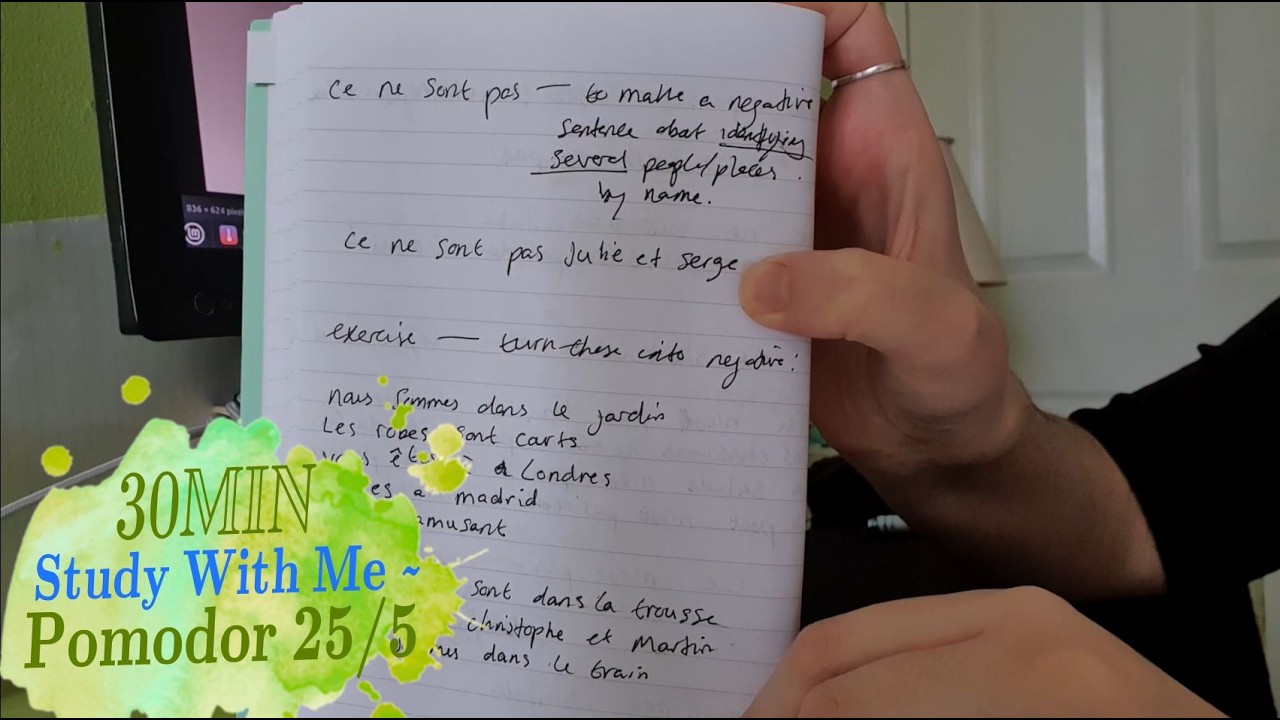 836 × 624 pixel
ce ne sont pas — to make a negative
sentence abat identifying
several people/places.
by name.
ce ne sont pas Julie et Serge
exercise — turn these into negative:
nous sommes dans le jardin
Les robes sont
à Londres
es a madrid
amusant
sont dans la trousse
christophe et Martin
dans le train
30MIN
Study With Me ~
Pomodor 25/5